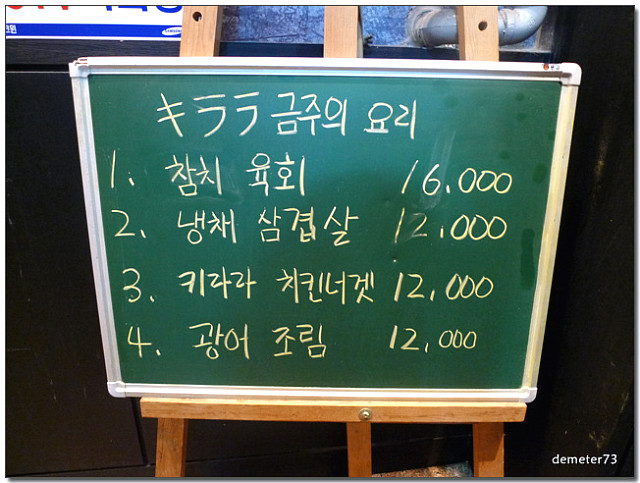 キララ 금주의 요리
1. 참치 육회 16.000
2. 냉채 삼겹살 12.000
3. 키라라 치킨너겟 12,000
4. 광어 조림 12,000
SAMSUNG
demeter73